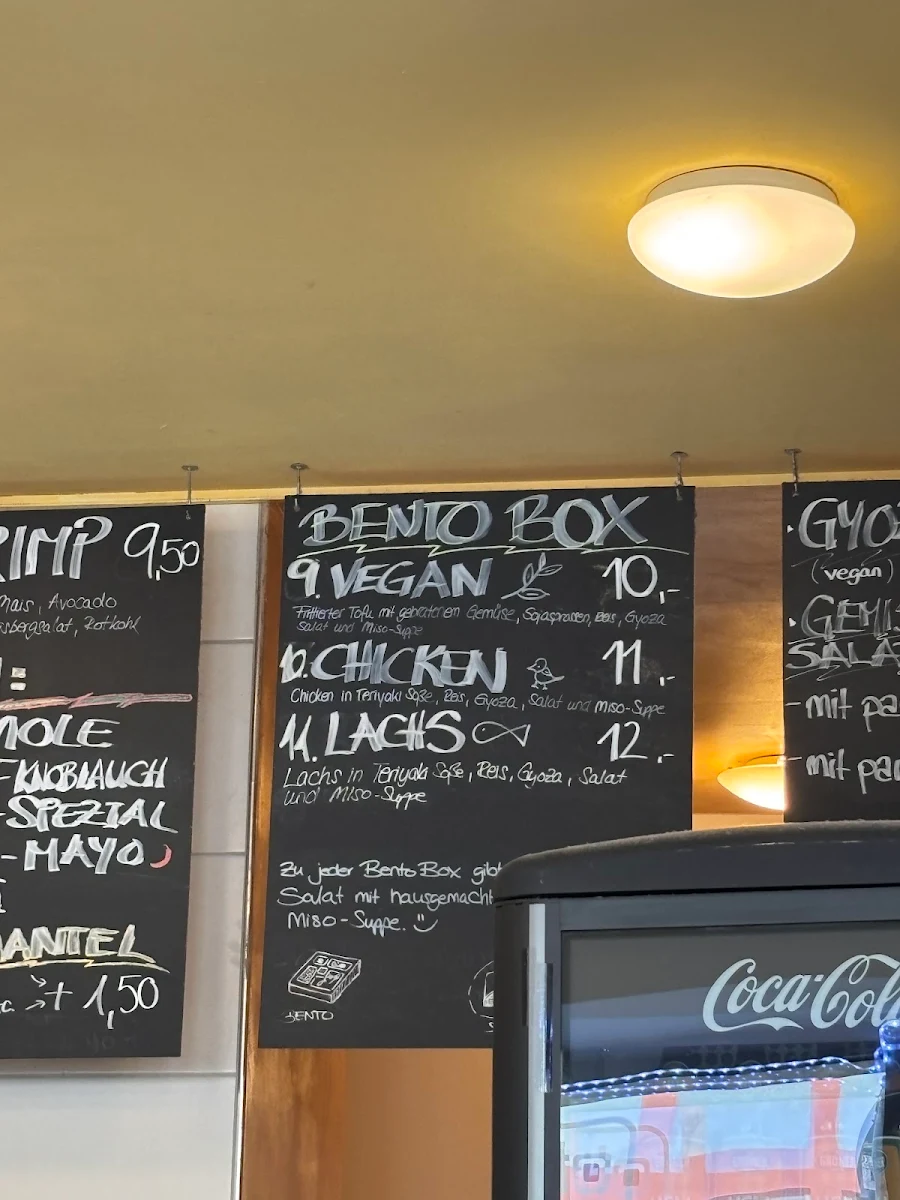 RIMP 9,50
Mais, Avocado
sbergsalat, Rotkohl
:
MOLE
KNOBLAUCH
-SPEZIAL
-MAYO
MANTEL
+ 1,50
BENTO BOX
9. VEGAN 10,-
Frittierter Tofu mit gebratenem Gemüse, Sojasprossen, Reis, Gyoza
Salat und Miso-Suppe
10. CHICKEN 11,-
Chicken in Teriyaki Soße, Reis, Gyoza, Salat und Miso-Suppe
11. LACHS 12,-
Lachs in Teriyaki Soße, Reis, Gyoza, Salat
und Miso-Suppe
Zu jeder Bento Box gibt
Salat mit hausgemacht
Miso-Suppe.
BENTO
· GYOZ
(vegan)
· GEMIS
SALA
- mit pa
- mit pa
Coca-Cola